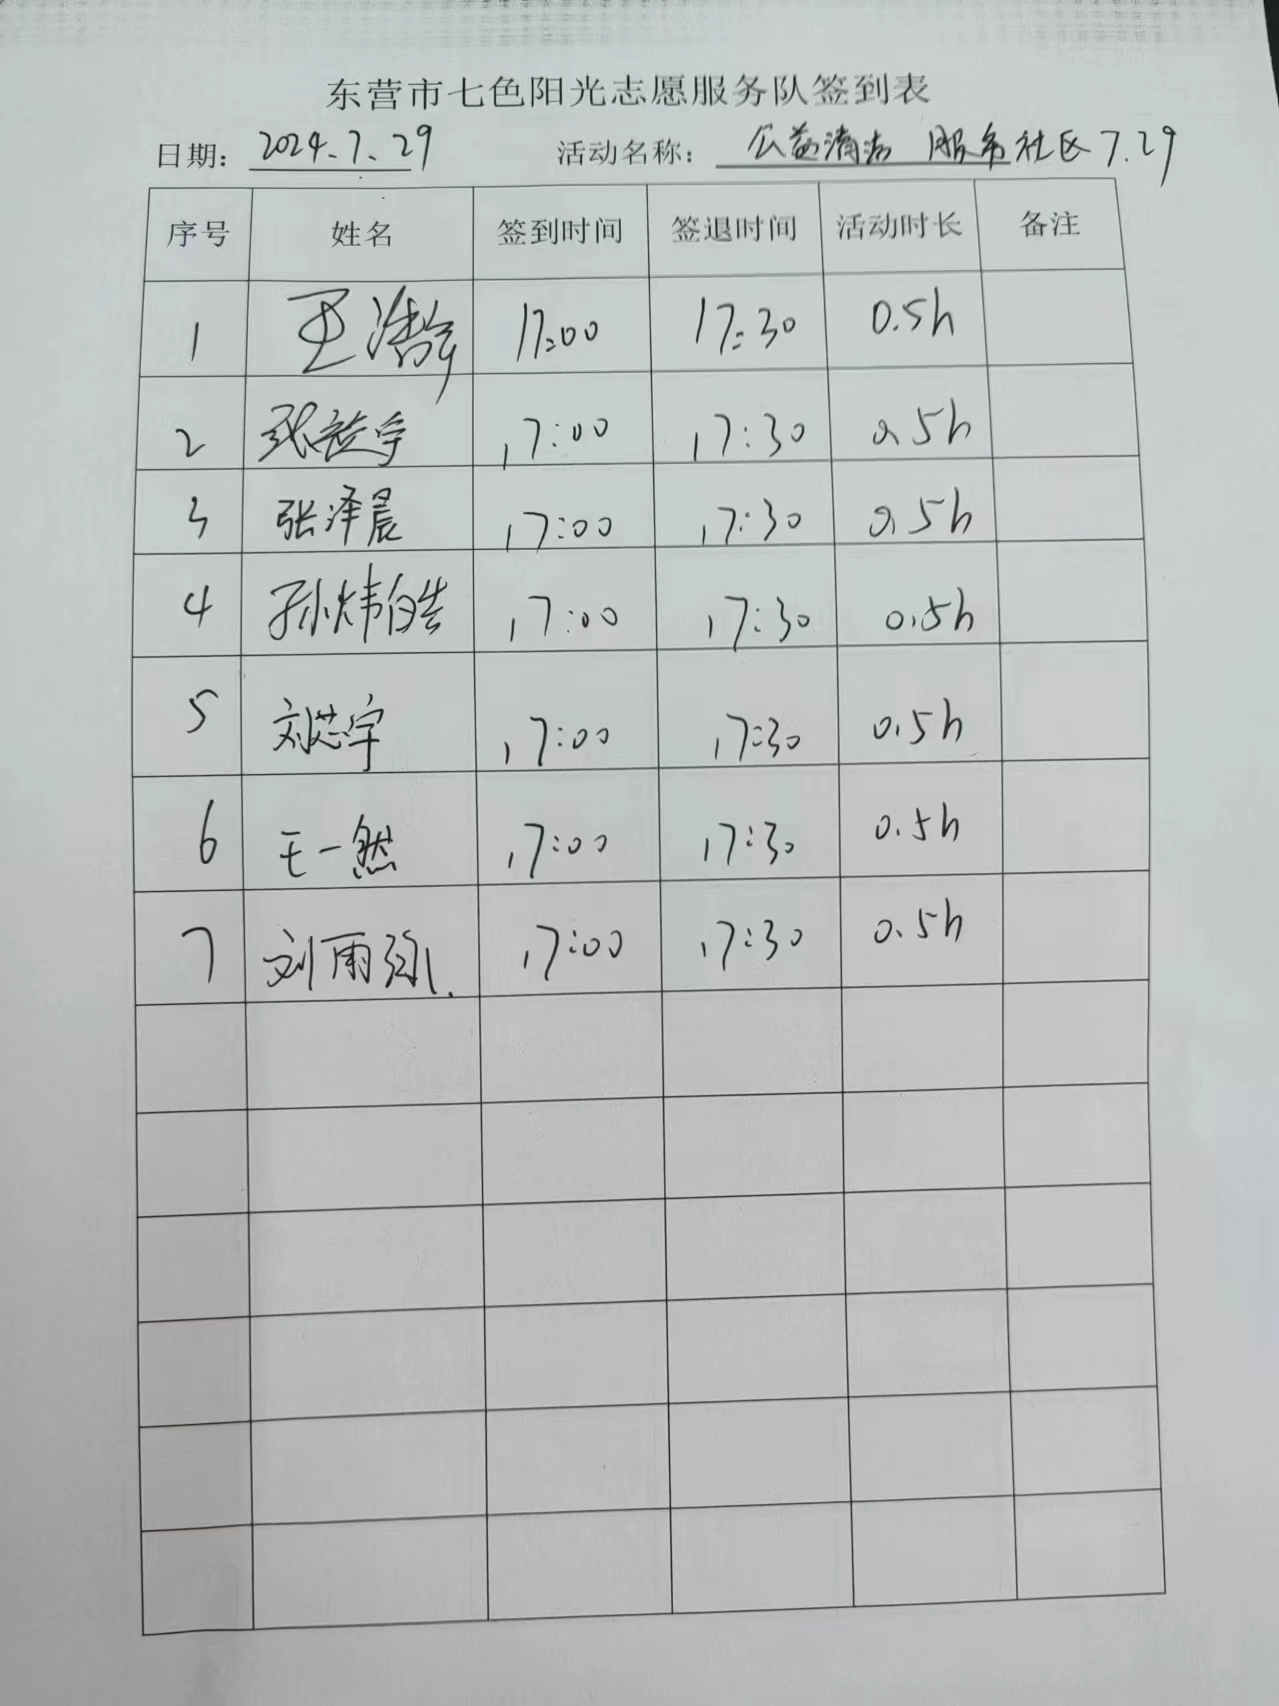 东营市七色阳光志愿服务队签到表
日期: 2024.7.29 活动名称: 公益清洁 服务社区7.29
序号 姓名 签到时间 签退时间 活动时长 备注
1 王浩宇 17:00 17:30 0.5h
2 张益宁 17:00 17:30 0.5h
3 张泽晨 17:00 17:30 0.5h
4 孙炜皓 17:00 17:30 0.5h
5 刘芯宇 17:00 17:30 0.5h
6 王一然 17:00 17:30 0.5h
7 刘雨 17:00 17:30 0.5h